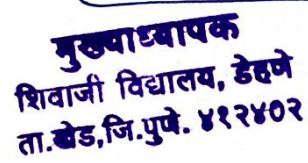 मुख्याध्यापक
शिवाजी विद्यालय, डेहणे
ता.खेड,जि.पुणे. ४१२४०२